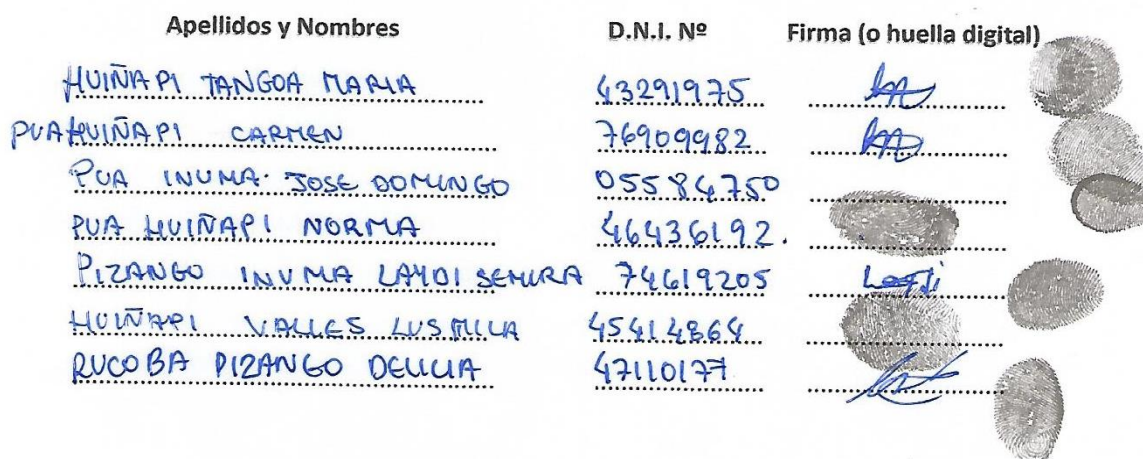 Apellidos y Nombres D.N.I. Nº Firma (o huella digital)
HUIÑAPI TANGOA MARIA 43291975
PUA HUIÑAPI CARMEN 76909982
PUA INUMA JOSE DOMINGO 05584750
PUA HUIÑAPI NORMA 46436192.
PIZANGO INUMA LAYDI SEMIRA 74619205
HUIÑAPI VALLES LUSMILA 45414864
RUCOBA PIZANGO DELICIA 47110177